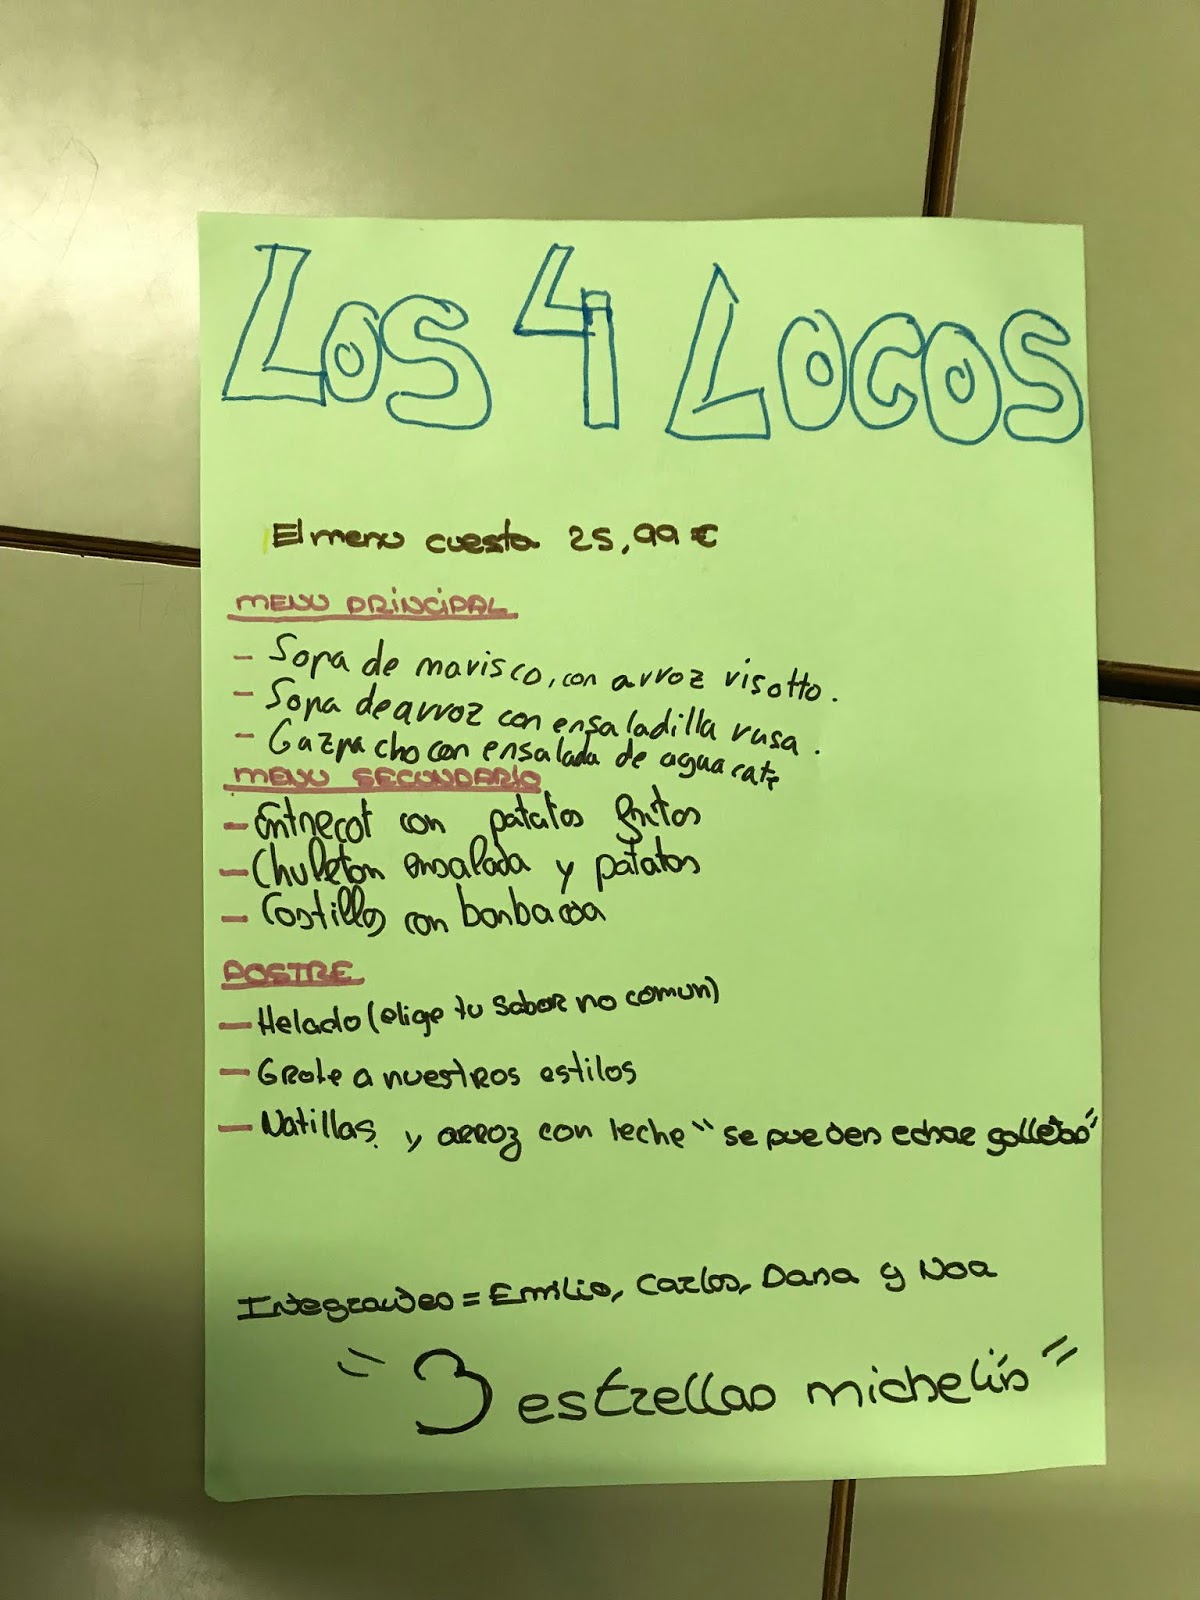 Los 4 Locos
El menu cuesta 25,99 €
MENU PRINCIPAL
- Sopa de marisco, con arroz risotto.
- Sopa de arroz con ensaladilla rusa.
- Gazpacho con ensalada de aguacate
MENU SECUNDARIO
- Entrecot con patatas fritas
- Chuleton ensalada y patatas
- Costillas con barbacoa
POSTRE
- Helado (elige tu sabor no comun)
- Grote a nuestros estilos
- Natillas y arroz con leche "se pueden echar galletas"
Integrantes = Emilio, Carlos, Dana y Noa
"3 estrellas michelín"